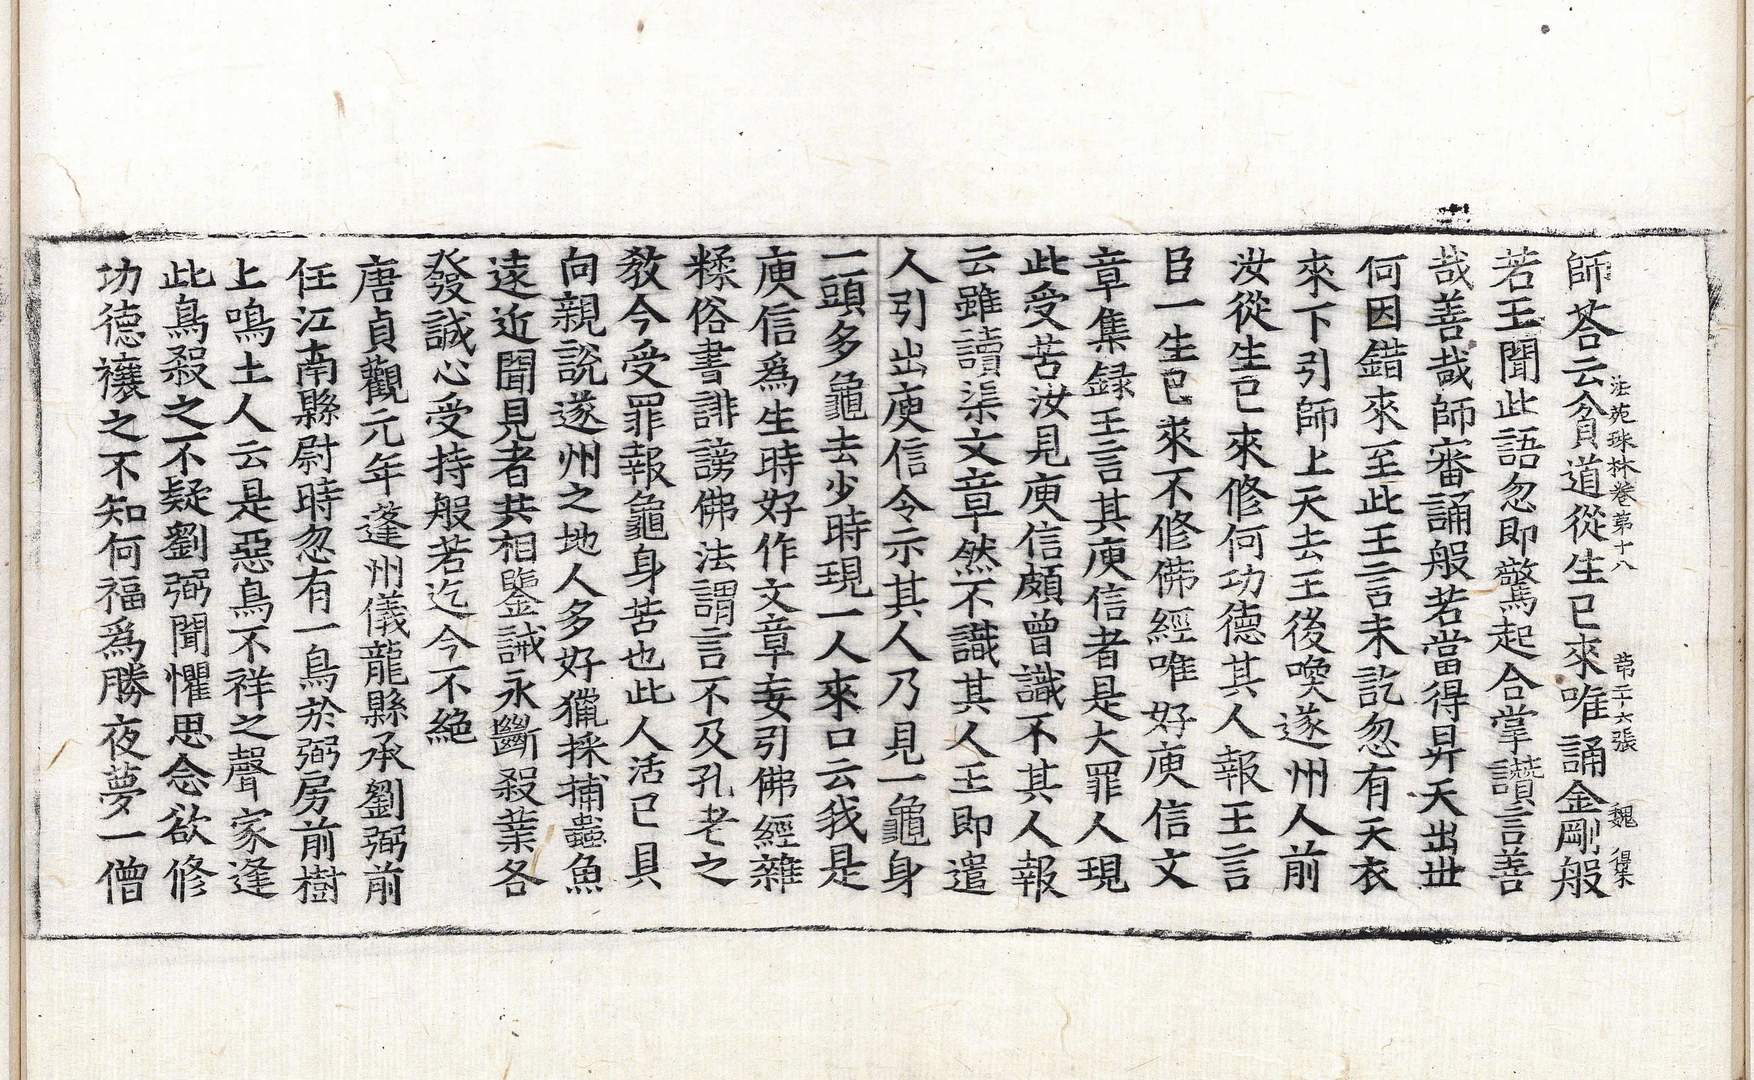 師荅云貧道從生已來唯誦金剛般
法苑珠林卷第十八 第二十六張 魏 得集
若王聞此語忽即驚起合掌讚言善
哉善哉師審誦般若當得昇天出世
何因錯來至此王言未訖忽有天衣
來下引師上天去王後喚遂州人前
汝從生已來修何功德其人報王言
臣一生已來不修佛經唯好庾信文
章集録王言其庾信者是大罪人現
此受苦汝見庾信頗曾識不其人報
云雖讀渠文章然不識其人王即遣
人引出庾信令示其人乃見一龜身
一頭多龜去少時現一人來口云我是
庾信爲生時好作文章妄引佛經雜
糅俗書誹謗佛法謂言不及孔老之
教今受罪報龜身苦也此人活已具
向親說遂州之地人多好獵採捕蟲魚
遠近聞見者共相鑒誡永斷殺業各
發誠心受持般若迄今不絶
唐貞觀元年蓬州儀龍縣丞劉弼前
任江南縣尉時忽有一鳥於弼房前樹
上鳴土人云是惡鳥不祥之聲家逢
此鳥殺之不疑劉弼聞懼思念欲修
功德禳之不知何福爲勝夜夢一僧